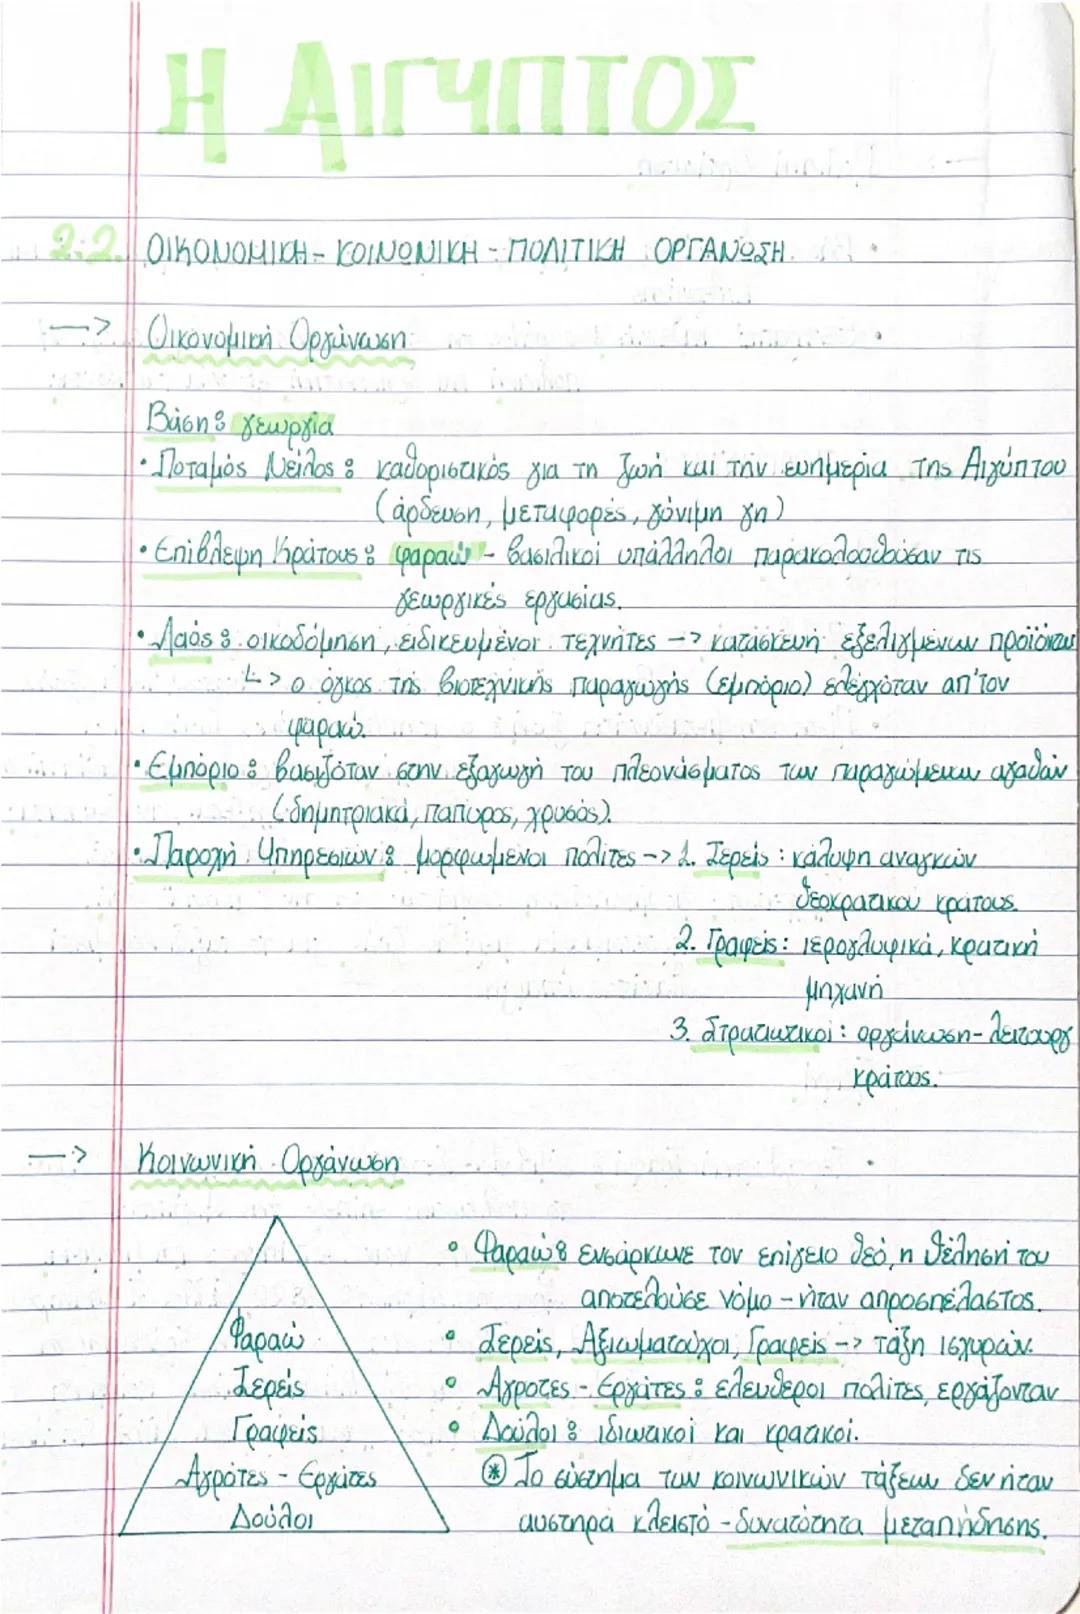 Η ΑΙΓΥΠΤΟΣ
2.2. ΟΙΚΟΝΟΜΙΚΗ - ΚΟΙΝΩΝΙΚΗ - ΠΟΛΙΤΙΚΗ ΟΡΓΑΝΩΣΗ.
—> Οικονομική Οργάνωση
Βάση: γεωργία
• Ποταμός Νείλος: καθοριστικός για τη ζωή και την ευημερία της Αιγύπτου
(άρδευση, μεταφορές, γόνιμη γη)
• Επίβλεψη Κράτους: φαραώ - βασιλικοί υπάλληλοι παρακολουθούσαν τις
γεωργικές εργασίας.
• Λαός: οικοδόμηση, ειδικευμένοι τεχνήτες -> κατασκευή εξελιγμένων προϊόντων
↳> ο όγκος της βιοτεχνικής παραγωγής (εμπόριο) ελεγχόταν απ'τον
φαραώ.
• Εμπόριο: βασιζόταν στην εξαγωγή του πλεονάσματος των παραγώμενων αγαθών
(δημητριακά, πάπυρος, χρυσός).
• Παροχή Υπηρεσιών: μορφωμένοι πολίτες -> 1. Ιερείς: κάλυψη αναγκών
θεοκρατικου κράτους.
2. Γραφείς: ιερογλυφικά, κρατική
μηχανή
3. Στρατιωτικοί: οργάνωση - λειτουργ
κράτους.
—> Κοινωνική Οργάνωση
• Φαραώ: ενσάρκωνε τον επίγειο θεό, η θέλησή του
αποτελούσε νόμο - ήταν απροσπέλαστος.
Φαραώ
• Ιερείς, Αξιωματούχοι, Γραφείς -> τάξη ισχυρών.
Ιερείς
• Αγρότες - Εργάτες: ελεύθεροι πολίτες, εργάζονταν
Γραφείς
• Δούλοι: ιδιωτικοί και κρατικοί.
Αγρότες - Εργάτες
⊛ Το σύστημα των κοινωνικών τάξεων δεν ήταν
Δούλοι
αυστηρά κλειστό - δυνατότητα μεταπήδησης.